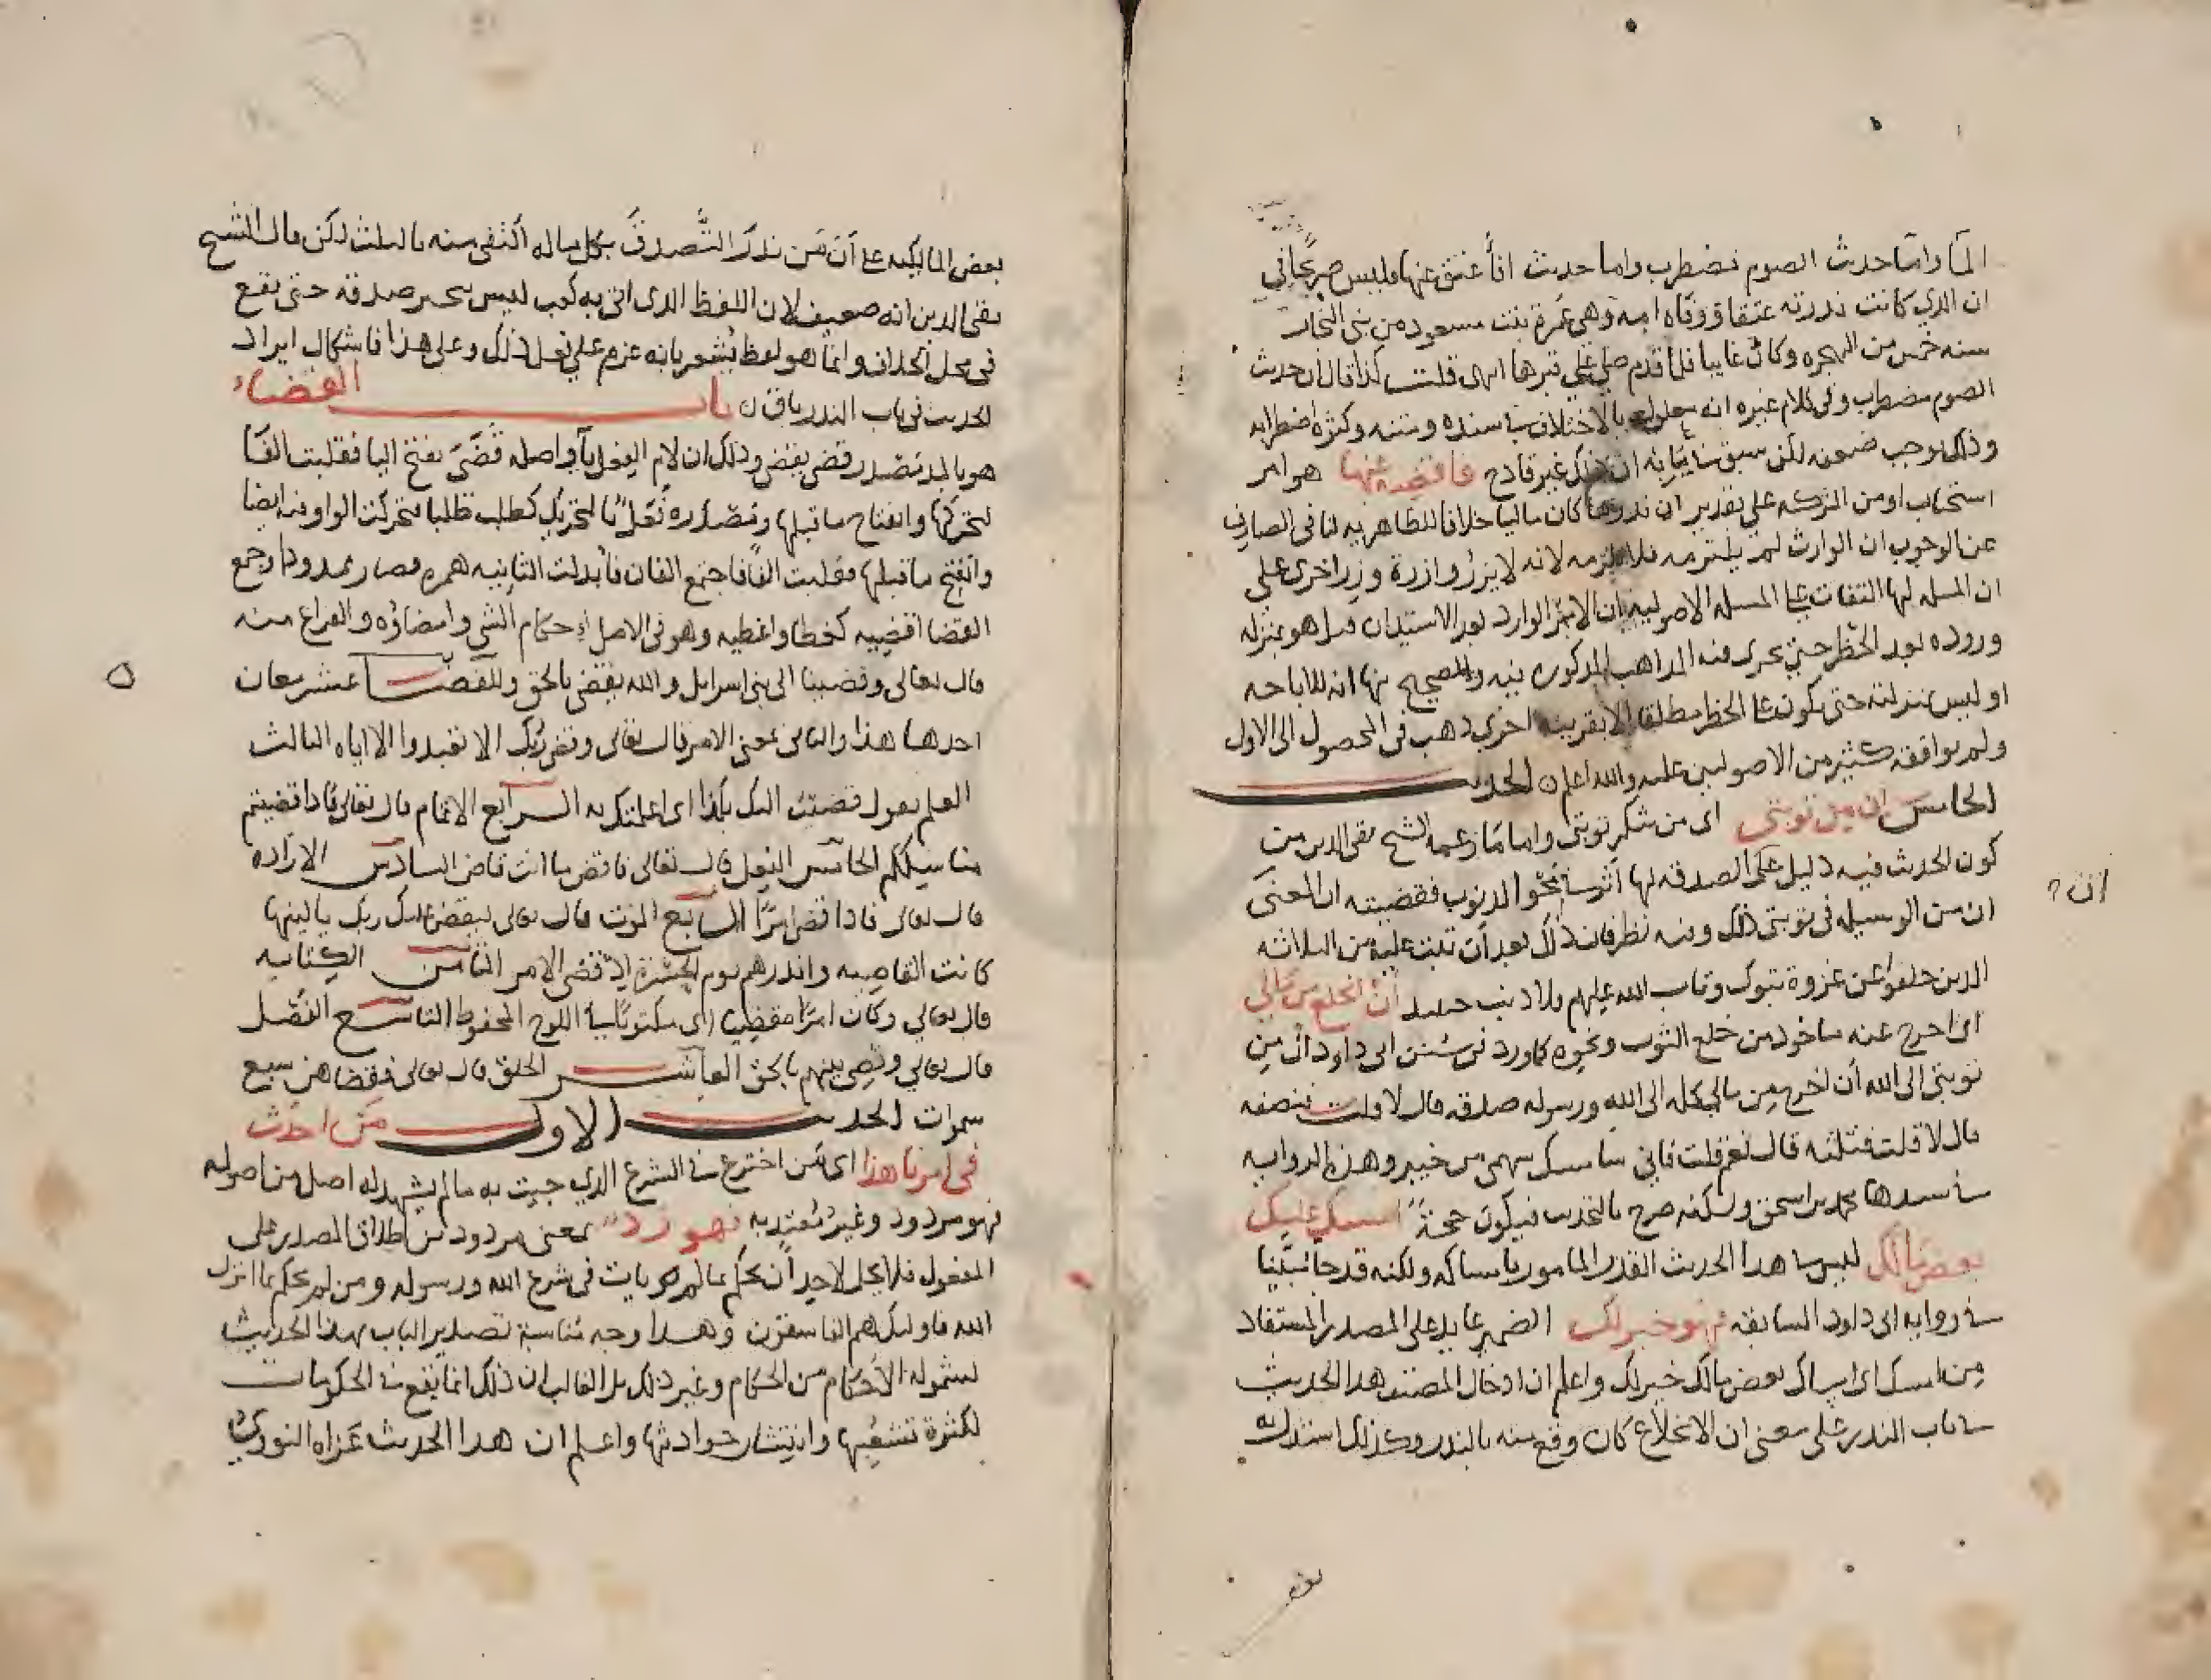 الما واما حديث الصوم فمضطرب واما حديث افأعتق عنها فليس صريحا في
ان الذي كانت نذرته عتقا ووفاه امه وهي عمرة بنت مسعود من بني النجار
سنه خمس من الهجره وكان غايبا فلما قدم صلى على قبرها انتهى قلت كذا قال ان حديث
الصوم مضطرب وفي كلام غيره انه معلول بالاختلاف في سنده ومتنه وكثرة اضطرابه
وذلك يوجب ضعفه لكن سبق في بابه ان ذلك غير قادح فاقضه عنها هو امر
استحباب او من التركه على تقدير ان نذرها كان ماليا خلافا للظاهريه لنا في الصارف
عن الوجوب ان الوارث لم يلتزمه فلا يلزمه لانه لا يزر وازرة وزر اخرى على
ان المسله لها التفات على المسله الاصوليه ان الامر الوارد بعد الاستيذان هل هو بمنزله
وروده بعد الحظر حتى يجرى فيه المذاهب المذكوره فيه والصحيح منها انه للاباحه
او ليس بمنزلته حتى يكون على الحظر مطلقا الا بقرينه اخرى ذهب في المحصول الى الاول
ولم يوافقه كثير من الاصوليين عليه والله اعلم الحديث
الخامس ان من توبتي اى من شكر توبتي واما ما زعمه الشيخ تقي الدين من
كون الحديث فيه دليل على الصدقه لها اثر في محو الذنوب فقضيته ان المعنى
ان من الوسيله في توبتي ذلك وفيه نظر فان ذلك بعد أن تيب عليه من الثلاثه
الذين خلفوا عن غزوة تبوك وتاب الله عليهم فلا ذنب حينيذ أن انخلع من مالي
اى اخرج عنه ماخوذ من خلع الثوب ونحوه كما ورد في سنن ابي داود ان من
توبتي الى الله أن اخرج من مالي كله الى الله ورسوله صدقه قال لا قلت فنصفه
قال لا قلت فثلثه قال نعم قلت فاني سامسك سهمي من خيبر وهذه الروايه
في سندها محمد بن اسحق ولكنه صرح بالتحديث فيكون حجةً امسك عليك
بعض مالك ليس في هذا الحديث القدر المامور بامساكه ولكنه قد جا مُبيّنا
في روايه ابى داود السابقه فهو خير لك الضمير عايد على المصدر المستفاد
من امسك اى امساك بعض مالك خير لك واعلم ان ادخال المصنف هذا الحديث
في باب النذر على معنى ان الانخلاع كان وقع منه بالنذر وكذلك استدل به
ان ?
بعض المالكيه على أن من نذر التصدق بكل ماله اكتفى منه بالثلث لكن قال الشيخ
تقي الدين انه ضعيف لان اللفظ الذى اتى به كعب ليس بتنجيز صدقه حتى يقع
في محل الخلاف وانما هو لفظ يُشعر بانه عزم على فعل ذلك وعلى هذا فاشكال ايراد
الحديث في باب النذر باق ن باب القضاء
هو بالمد مصدر قضى يقضي وذلك ان لام الفعل يا واصله قَضَىَ بفتح اليا فقلبت الفا
لتحركها وانفتاح ما قبلها ومصدره فَعَلٌ بالتحريك كطلب طلبا فتحركت الواو فيه ايضا
وانفتح ما قبلها فقلبت الفا فاجتمع الفان فأبدلت الثانيه همزه فصار ممدودا وجمع
القضا اقضيه كغطا واغطيه وهو في الاصل إحكام الشي وامضاؤه والفراغ منه
قال تعالى وقضينا الى بني اسرايل والله يقضي بالحق وللقضا عشر معان
احدها هذا والثاني بمعنى الامر قال تعالى وقضى ربك الا تعبدوا الا اياه الثالث
العلم يقول قضيت اليك بكذا اى اعلمتك به الرابع الاتمام قال تعالى فاذا قضيتم
مناسككم الخامس الفعل قال تعالى فاقض ما انت قاض السادس الاراده
قال تعالى فاذا قضى امرًا السابع الموت قال تعالى ليقض علينا ربك ياليتها
كانت القاضيه وانذرهم يوم الحسرة اذ قضى الامر الثامن الكتابه
قال تعالى وكان امرًا مقضيا اى مكتوبا في اللوح المحفوظ التاسع الفصل
قال تعالى وقضى بينهم بالحق العاشر الخلق قال تعالى فقضاهن سبع
سموات الحديث الاول من احدث
في امرنا هذا اى من اخترع في الشرع الذى جيت به ما لم يشهد له اصل من اصوله
فهو مردود وغير مُعتد به فهو رد بمعنى مردود من اطلاق المصدر على
المفعول فلا يحل لاحد أن يحكم بما لم يات في شرع الله ورسوله ومن لم يحكم بما انزل
الله فاوليك هم الفاسقون وهذا وجه مُناسبة تصدير الباب بهذا الحديث
لشموله الأحكام من الحكام وغير ذلك بل الغالب ان ذلك انما يقع في الحكومات
لكثرة تشعُّبها وانتشار حوادثها واعلم ان هذا الحديث عَزاه النووى